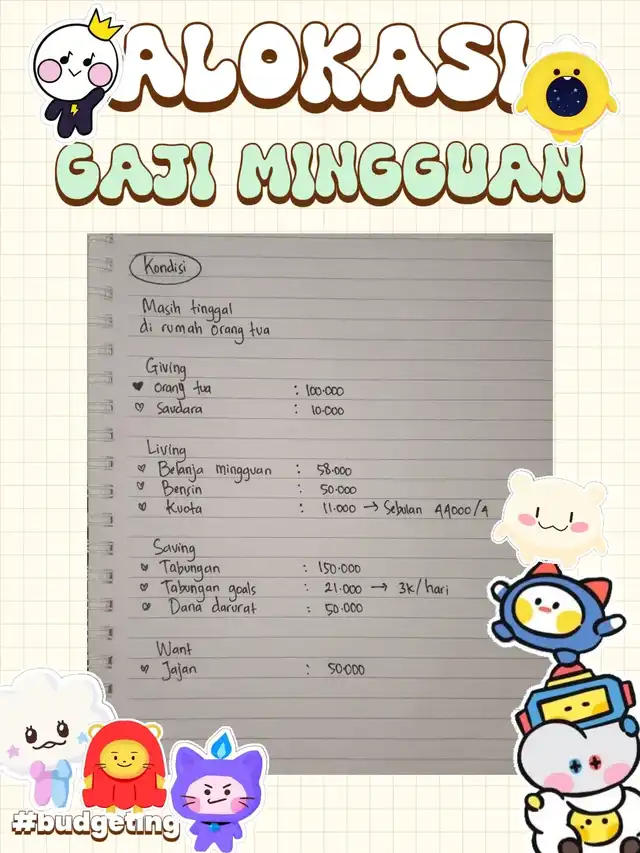 ALOKASI
GAJI MINGGUAN
Kondisi
Masih tinggal
di rumah orang tua
Giving
orang tua : 100.000
Saudara : 10.000
Living
Belanja mingguan : 58.000
Bensin : 50.000
Kuota : 11.000 → Sebulan 44000/4
Saving
Tabungan : 150.000
Tabungan goals : 21.000 → 3k/hari
Dana darurat : 50.000
Want
Jajan : 50.000
#budgeting